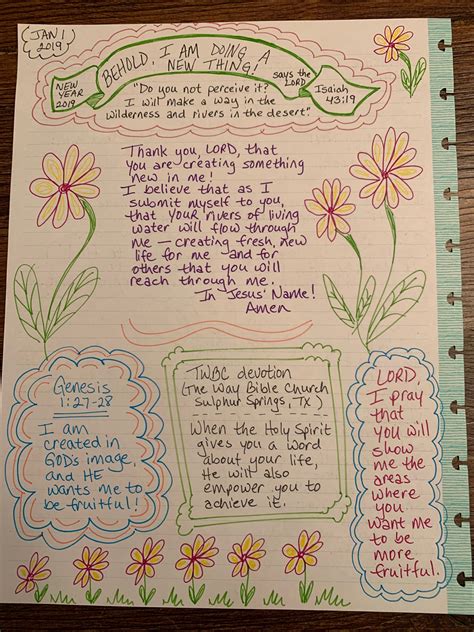 (JAN 1
2019)
BEHOLD, I AM DOING A
NEW THING!
says the
LORD
NEW
YEAR
2019
Isaiah
43:19
"Do you not perceive it?
I will make a way in the
wilderness and rivers in the desert."
Thank you, LORD, that
you are creating something
new in me!
I believe that as I
submit myself to you,
that YOUR rivers of living
water will flow through
me — creating fresh, new
life for me and for
others that you will
reach through me.
In Jesus' Name!
Amen
Genesis
1:27-28
I am
created in
GOD's image,
and HE
wants me to
be fruitful!
TWBC devotion
(The Way Bible Church
Sulphur Springs, TX)
When the Holy Spirit
gives you a word
about your life,
He will also
empower you to
achieve it.
LORD,
I pray
that
you will
show
me the
areas
where
you
want me
to be
more
fruitful.